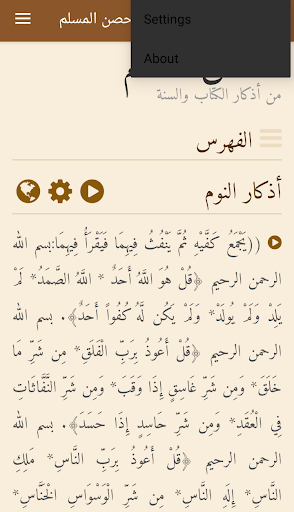 حصن المسلم
Settings
About
من أذكار الكتاب والسنة
الفهرس
أذكار النوم
((يَجْمَعُ كَفَّيْهِ ثُمَّ يَنْفُثُ فِيهِمَا فَيَقْرَأُ فِيهِمَا:بسم الله
الرحمن الرحيم ﴿قُلْ هُوَ اللَّهُ أَحَدٌ* اللَّهُ الصَّمَدُ* لَمْ
يَلِدْ وَلَمْ يُولَدْ* وَلَمْ يَكُن لَّهُ كُفُواً أَحَدٌ﴾. بسم الله
الرحمن الرحيم ﴿قُلْ أَعُوذُ بِرَبِّ الْفَلَقِ* مِن شَرِّ مَا
خَلَقَ* وَمِن شَرِّ غَاسِقٍ إِذَا وَقَبَ* وَمِن شَرِّ النَّفَّاثَاتِ
فِي الْعُقَدِ* وَمِن شَرِّ حَاسِدٍ إِذَا حَسَدَ﴾. بسم الله
الرحمن الرحيم ﴿قُلْ أَعُوذُ بِرَبِّ النَّاسِ* مَلِكِ
النَّاسِ* إِلَهِ النَّاسِ* مِن شَرِّ الْوَسْوَاسِ الْخَنَّاسِ*